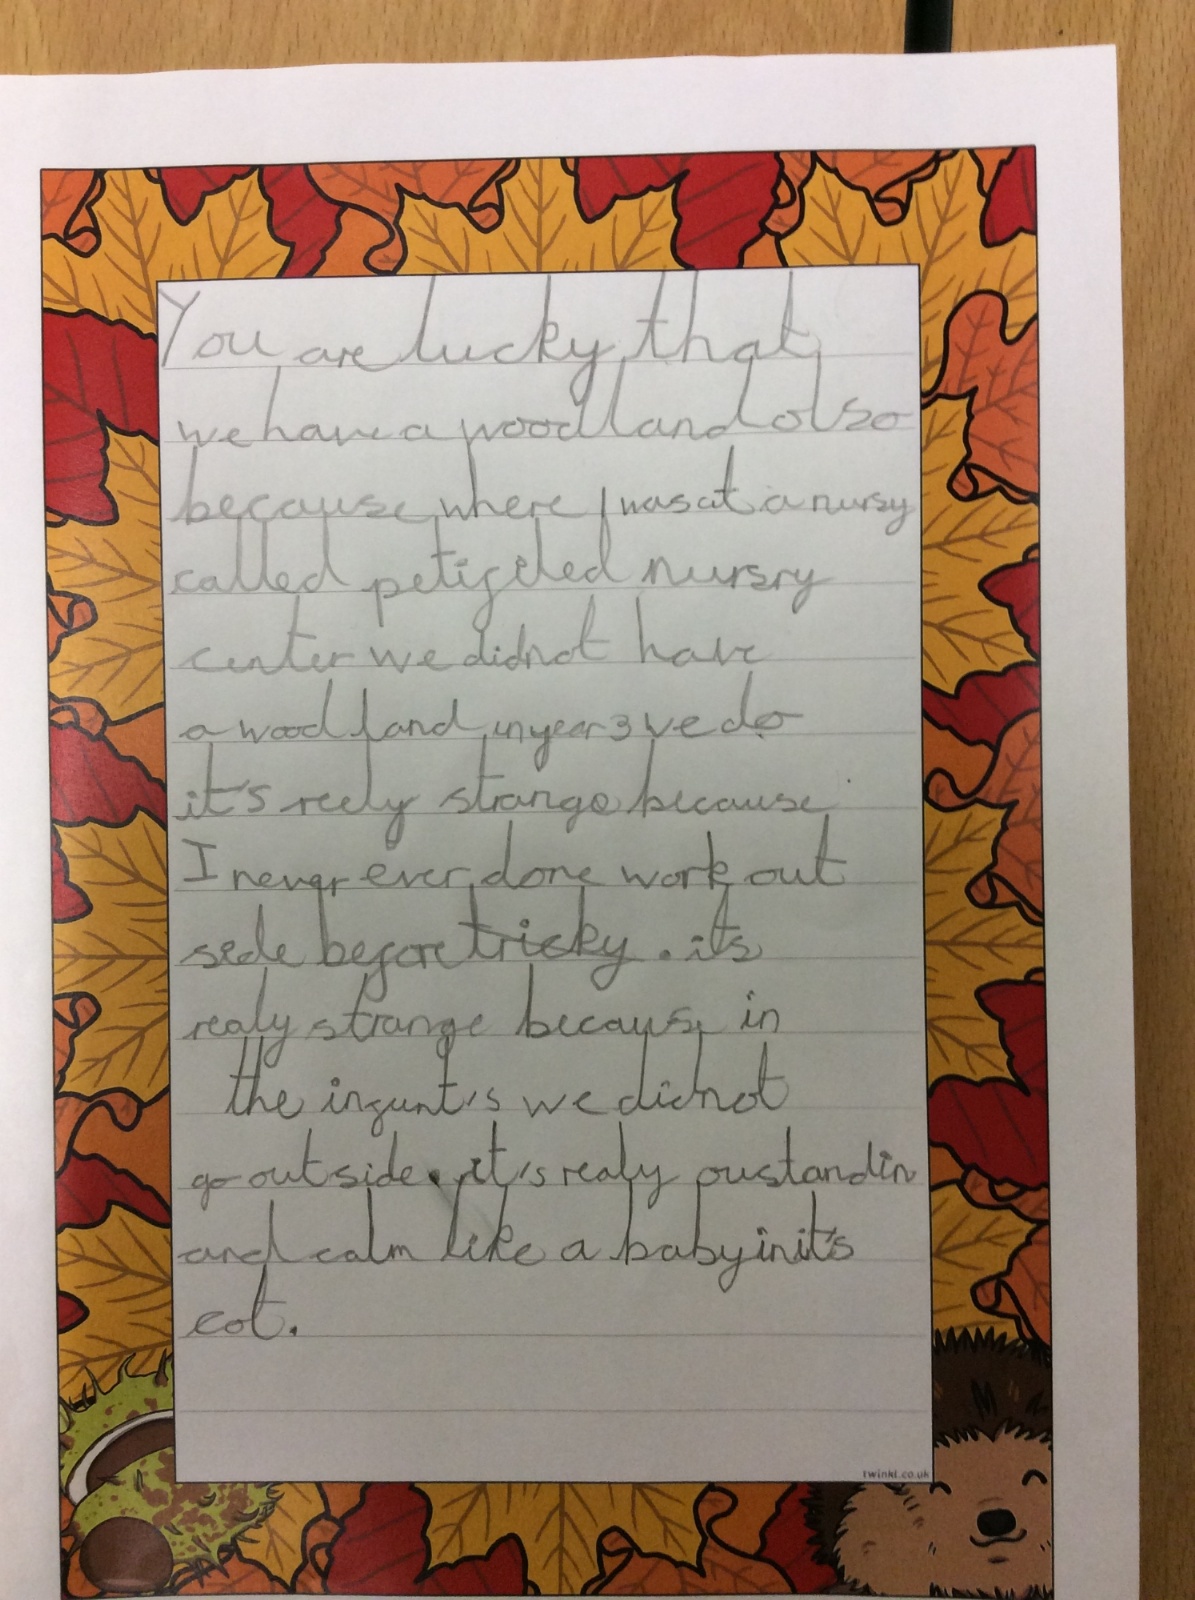 You are lucky that
we have a woodland olso
because where I was at a nursy
called petigeled nursry
center we did not have
a woodland in year 3 we do
it's reely strange because
I never ever done work out
side before tricky. its
realy strange becaus in
the infunt's we did not
go outside. it's realy oustandin
and calm like a baby in it's
cot.
twinkl.co.uk